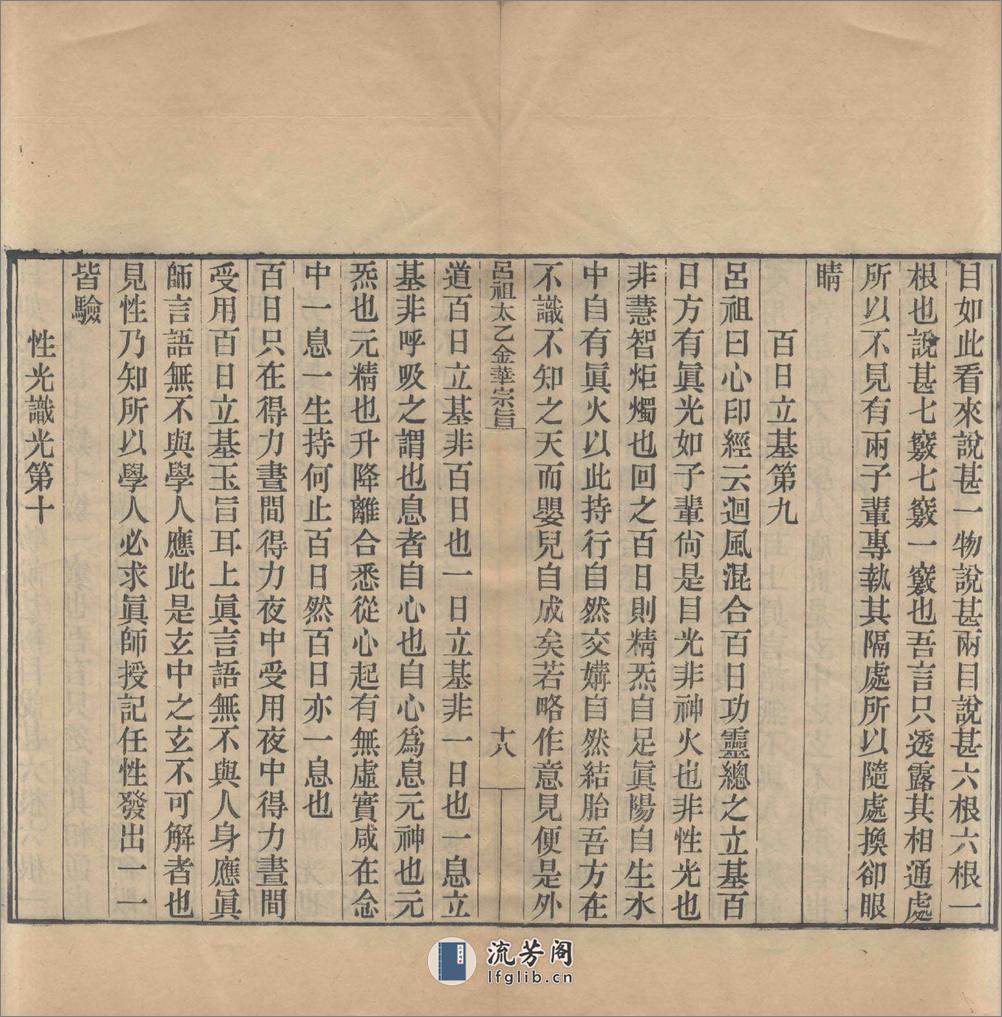 目如此看來說甚一物說甚兩目說甚六根六根一
根也說甚七竅七竅一竅也吾言只透露其相通處
所以不見有兩子輩專執其隔處所以隨處換卻眼
睛
百日立基第九
呂祖曰心印經云迴風混合百日功靈總之立基百
日方有眞光如子輩尙是目光非神火也非性光也
非慧智炬燭也回之百日則精炁自足眞陽自生水
中自有眞火以此持行自然交媾自然結胎吾方在
不識不知之天而嬰兒自成矣若略作意見便是外
呂祖太乙金華宗旨
十八
道百日立基非百日也一日立基非一日也一息立
基非呼吸之謂也息者自心也自心爲息元神也元
炁也元精也升降離合悉從心起有無虛實咸在念
中一息一生持何止百日然百日亦一息也
百日只在得力晝間得力夜中受用夜中得力晝間
受用百日立基玉旨耳上眞言語無不與人身應眞
師言語無不與學人應此是玄中之玄不可解者也
見性乃知所以學人必求眞師授記任性發出一一
皆驗
性光識光第十
流芳阁
lfglib.cn